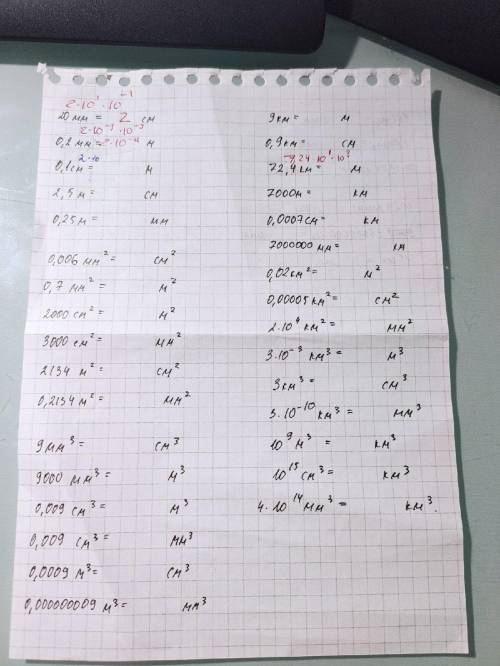 2·10¹·10⁻¹
20 мм = 2 см
2·10⁻¹·10⁻³
0,2 мм = 2·10⁻⁴ м
2·10
0,1 см = м
2,5 м = см
0,25 м = мм
0,006 мм² = см²
0,7 мм² = м²
2000 см² = м²
3000 см² = мм²
2134 м² = см²
0,2134 м² = мм²
9 мм³ = см³
9000 мм³ = м³
0,009 см³ = м³
0,009 см³ = мм³
0,0009 м³ = см³
0,000000009 м³ = мм³
9 км = м
0,9 км = см
7,24·10¹·10³
72,4 км = м
7000 м = км
0,0007 см = км
7000000 мм = км
0,02 км² = м²
0,00005 км² = см²
2·10⁴ км² = мм²
3·10⁻³ км³ = м³
3 км³ = см³
3·10⁻¹⁰ км³ = мм³
10⁹ м³ = км³
10¹⁵ см³ = км³
4·10¹⁴ мм³ = км³.